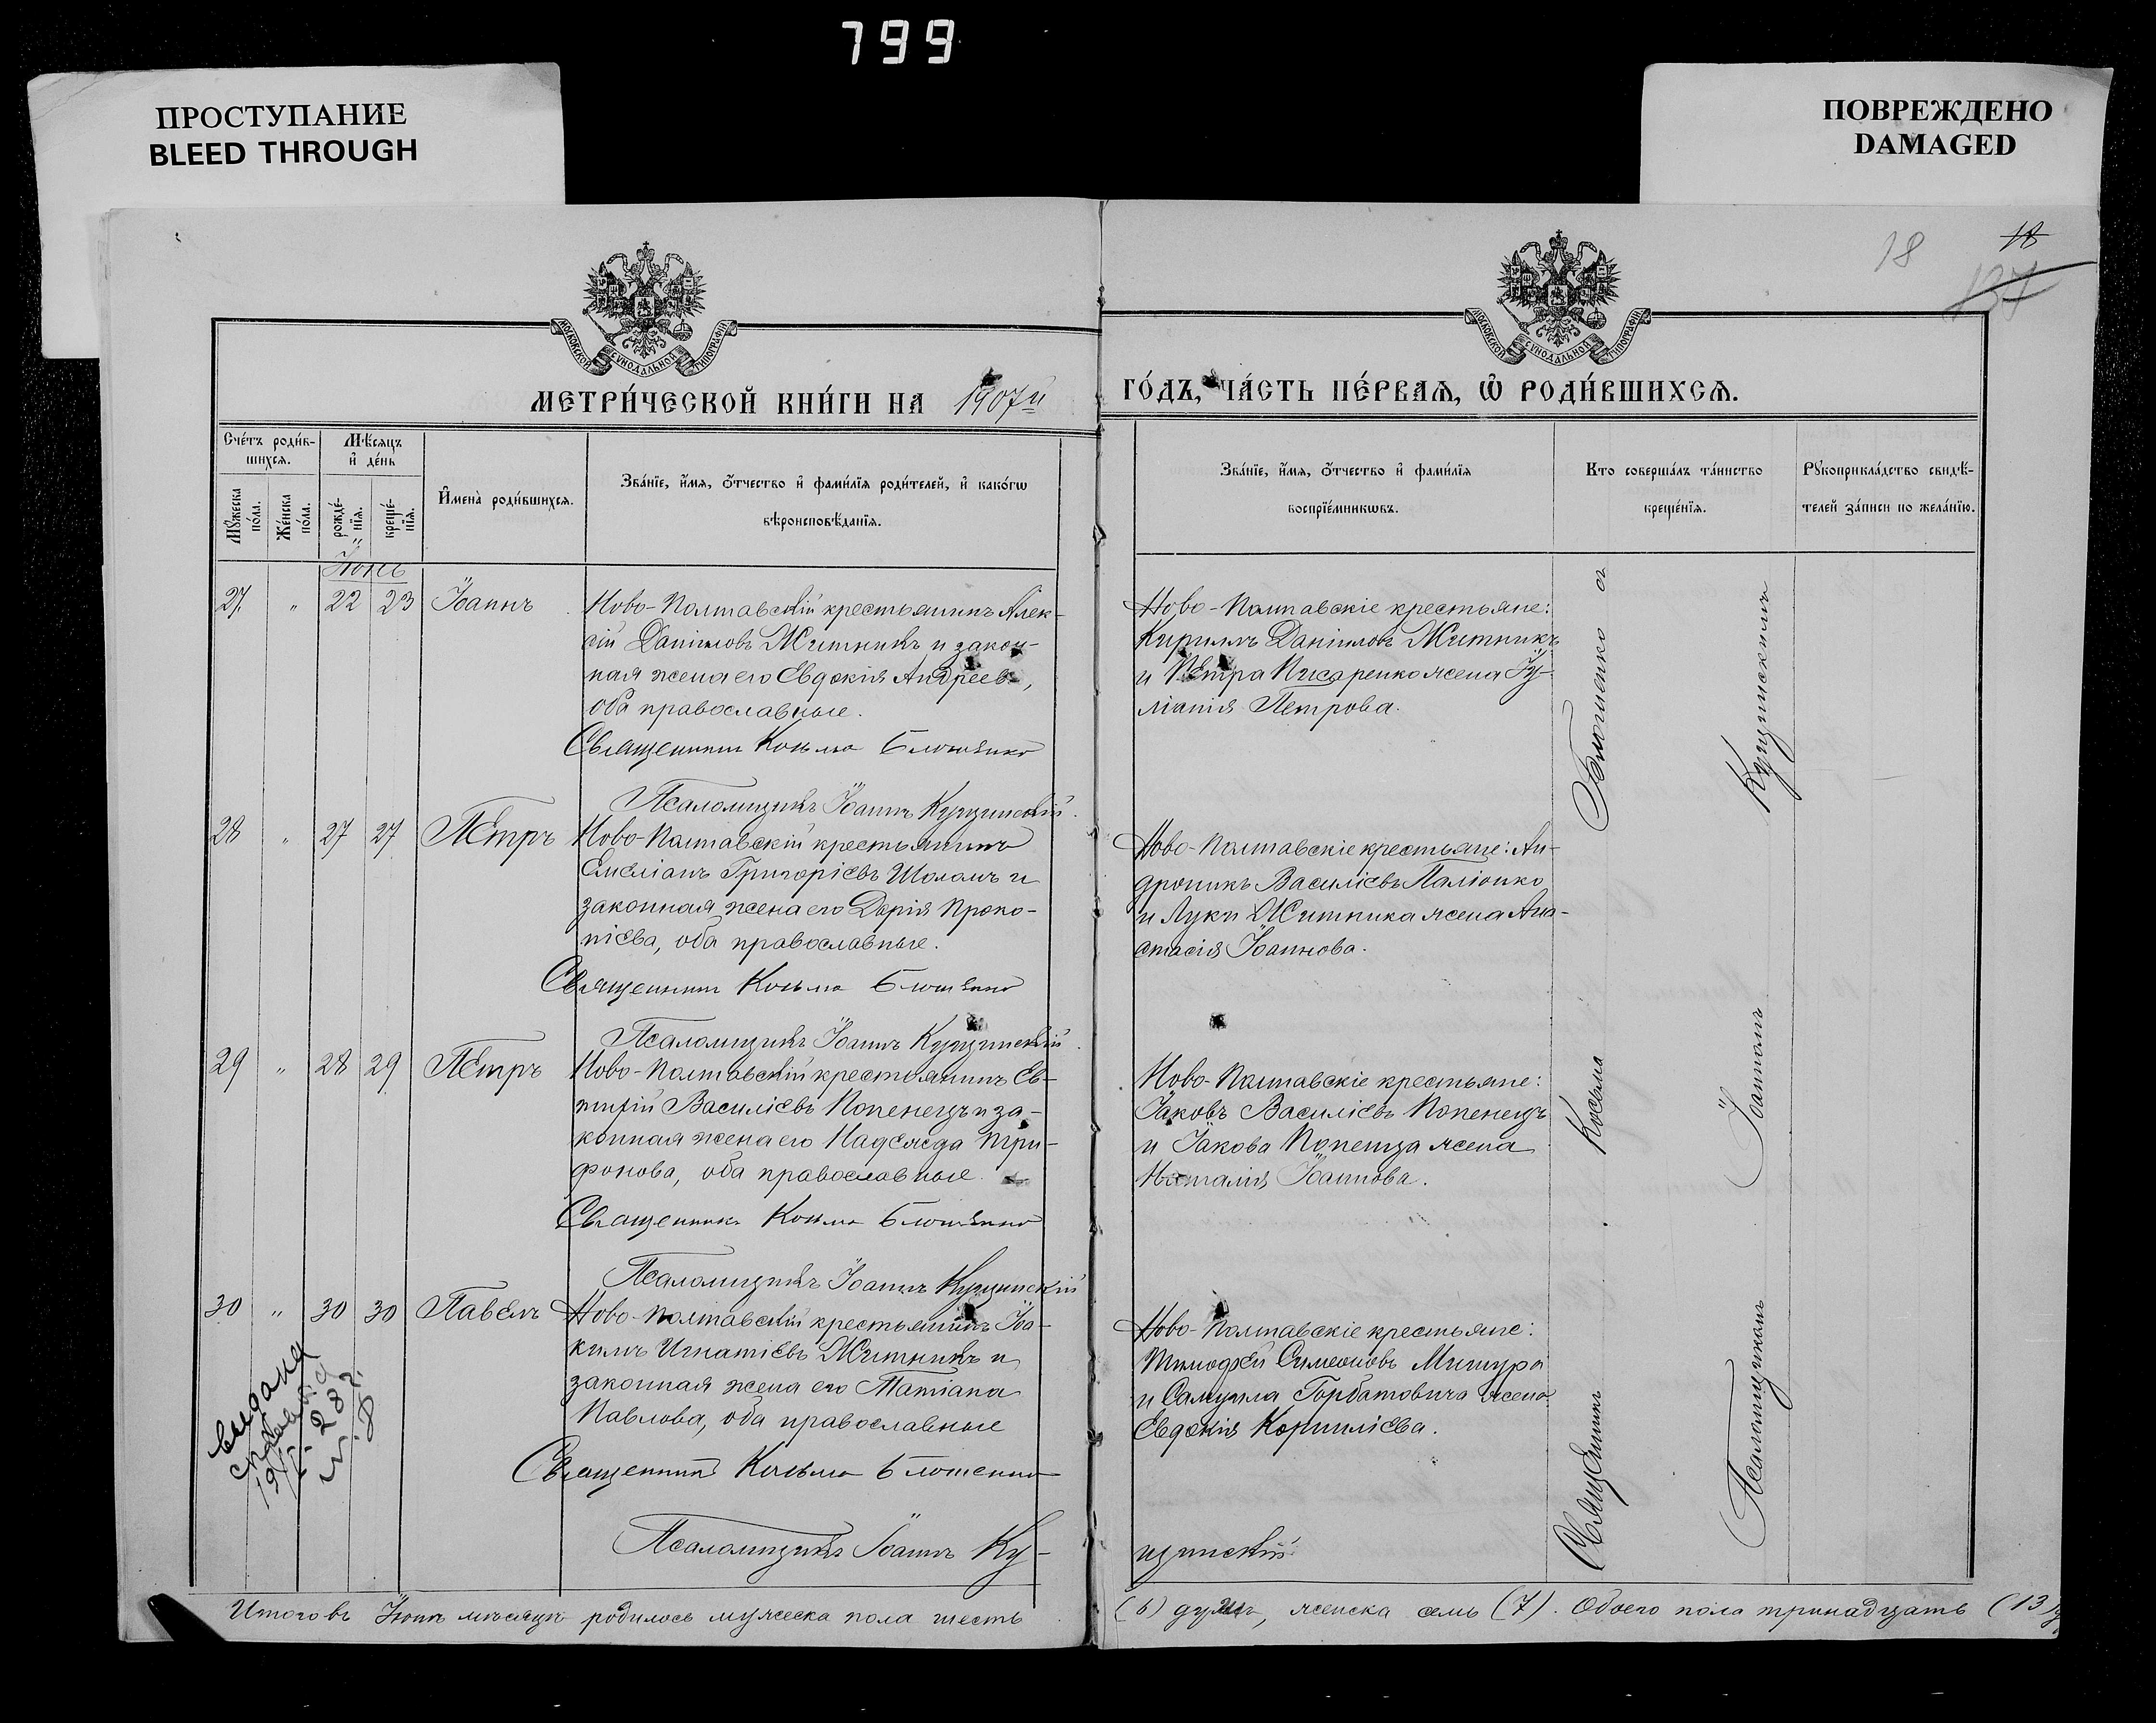 799
ПРОСТУПАНИЕ
BLEED THROUGH
ПОВРЕЖДЕНО
DAMAGED
18
18
137
МОСКОВСКОЙ СѴНОДАЛЬНОЙ ТИПОГРАФІИ
МОСКОВСКОЙ СѴНОДАЛЬНОЙ ТИПОГРАФІИ
МЕТРИ́ЧЕСКОЙ КНИ́ГИ НА 1907й
ГО́ДЪ, ЧА́СТЬ ПЕ́РВАѦ, Ѽ РОДИ́ВШИХСѦ.
Сче́тъ роди́в-
шихсѧ.
Мѣ́сѧцъ
и҆ де́нь
Мꙋ́жеска
по́ла.
Же́нска
по́ла.
рожде́-
нїѧ.
креще́-
нїѧ.
И҆мена̀ роди́вшихсѧ.
Зва́нїе, и҆́мѧ, ѻ҆́тчество и҆ фами́лїѧ роди́телей, и҆ како́гѡ
вѣроисповѣ́данїѧ.
Зва́нїе, и҆́мѧ, ѻ҆́тчество и҆ фами́лїѧ
воспрїе́мникѡвъ.
Кто соверша́лъ та́инство
креще́нїѧ.
Рꙋкоприкла́дство свидѣ́-
телей за́писи по жела́нїю.
Іюнь
27. " 22 23 Іоаннъ
Ново-Полтавскій крестьянинъ Алек-
сій Даніиловъ Житникъ и закон-
ная жена его Евдокія Андреева,
оба православные.
Священникъ Козьма Блошенко
Псаломщикъ Іоаннъ Кущинскій.
Ново-Полтавскіе крестьяне:
Кириллъ Даніиловъ Житникъ
и Петра Писаренко жена Іу-
ліанія Петрова.
28 " 27 27 Петръ
Ново-Полтавскій крестьянинъ
Емеліанъ Григоріевъ Шоломъ и
законная жена его Дарія Проко-
піева, оба православные.
Священникъ Козьма Блошенко
Псаломщикъ Іоаннъ Кущинскій.
Ново-Полтавскіе крестьяне: Ан-
дроникъ Василіевъ Паліонко
и Луки Житника жена Ана-
стасія Іоаннова.
29 " 28 29 Петръ
Ново-Полтавскій крестьянинъ Ев-
тихій Василіевъ Копенецъ и за-
конная жена его Надежда Три-
фонова, оба православные.
Священникъ Козьма Блошенко
Псаломщикъ Іоаннъ Кущинскій
Ново-Полтавскіе крестьяне:
Іаковъ Василіевъ Копенецъ
и Іакова Копенца жена
Наталія Іоаннова.
30 " 30 30 Павелъ
Ново-Полтавскій крестьянинъ Іоа-
кимъ Игнатіевъ Житникъ и
законная жена его Татіана
Павлова, оба православные
Священникъ Козьма Блошенко
Псаломщикъ Іоаннъ Ку-
щинскій.
Ново-Полтавскіе крестьяне:
Тимофей Симеоновъ Мишура
и Самуила Горбатовича жена
Евдокія Корниліева.
выдана
справка
Священникъ Козьма Блошенко съ
Псаломщикомъ Іоанномъ Кущинскимъ
Итого въ Іюнѣ мѣсяцѣ родилось мужеска пола шесть
(6) душъ, женска семь (7). Обоего пола тринадцать (13)